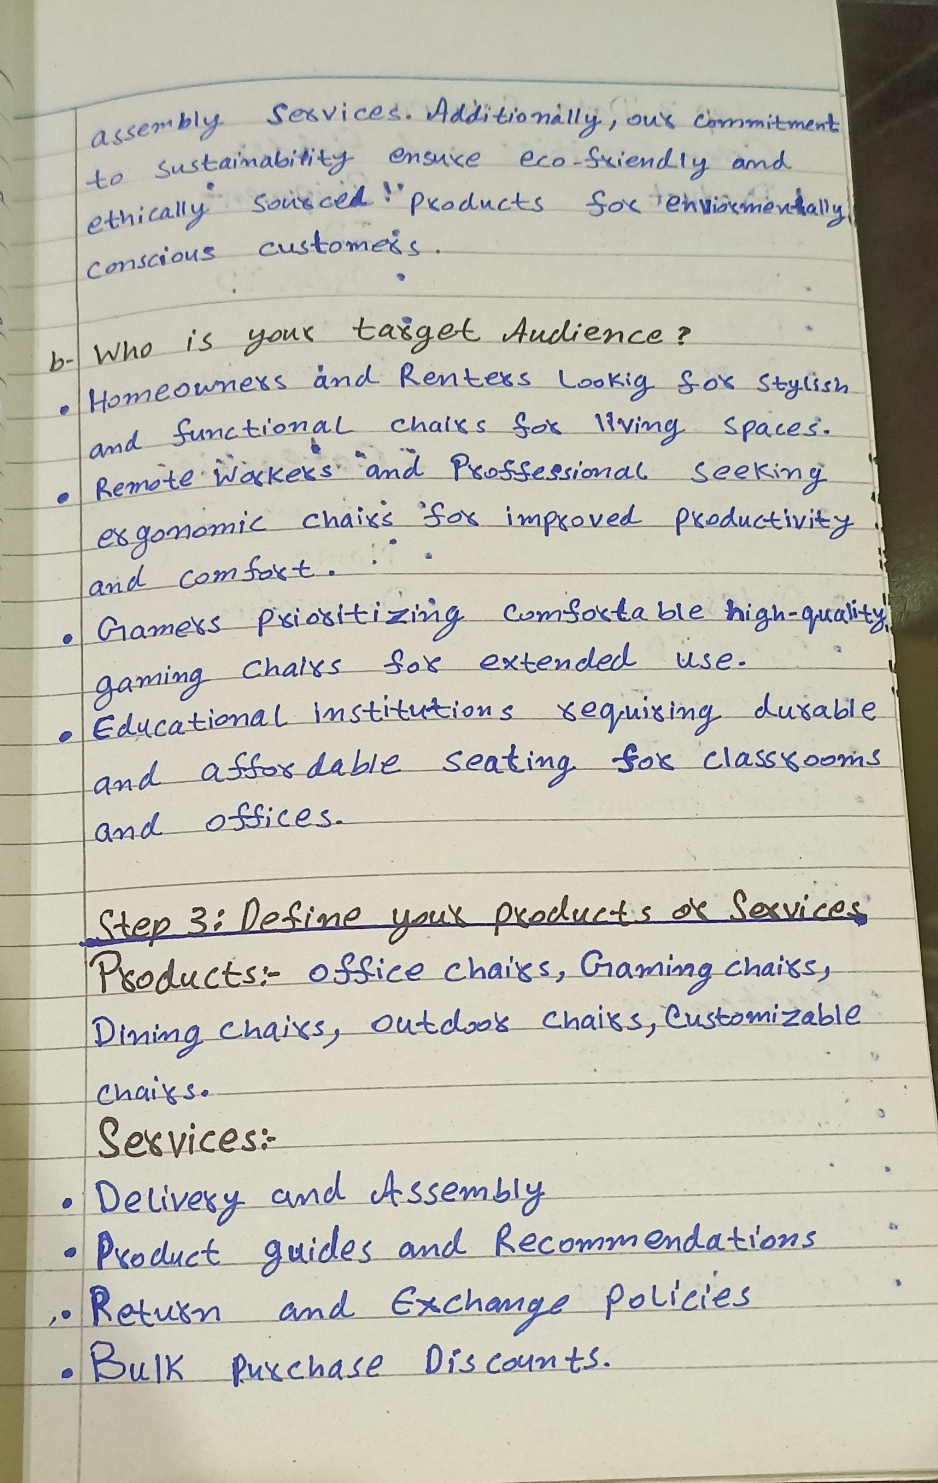 assembly Services. Additionally, our commitment
to sustainability ensure eco-friendly and
ethically sourced products for enviormentally
conscious customers.
b- Who is your target Audience?
• Homeowners and Renters Lookig for stylish
and functional chairs for living spaces.
• Remote Workers and Proffessional seeking
ergonomic chairs for improved productivity
and comfort.
• Gamers prioritizing comfortable high-quality
gaming chairs for extended use.
• Educational institutions requiring durable
and affordable seating for classrooms
and offices.
Step 3: Define your products or Services
Products:- office chairs, Gaming chairs,
Dining chairs, outdoor chairs, Customizable
chairs.
Services:-
• Delivery and Assembly
• Product guides and Recommendations
• Return and Exchange policies
• Bulk purchase Discounts.